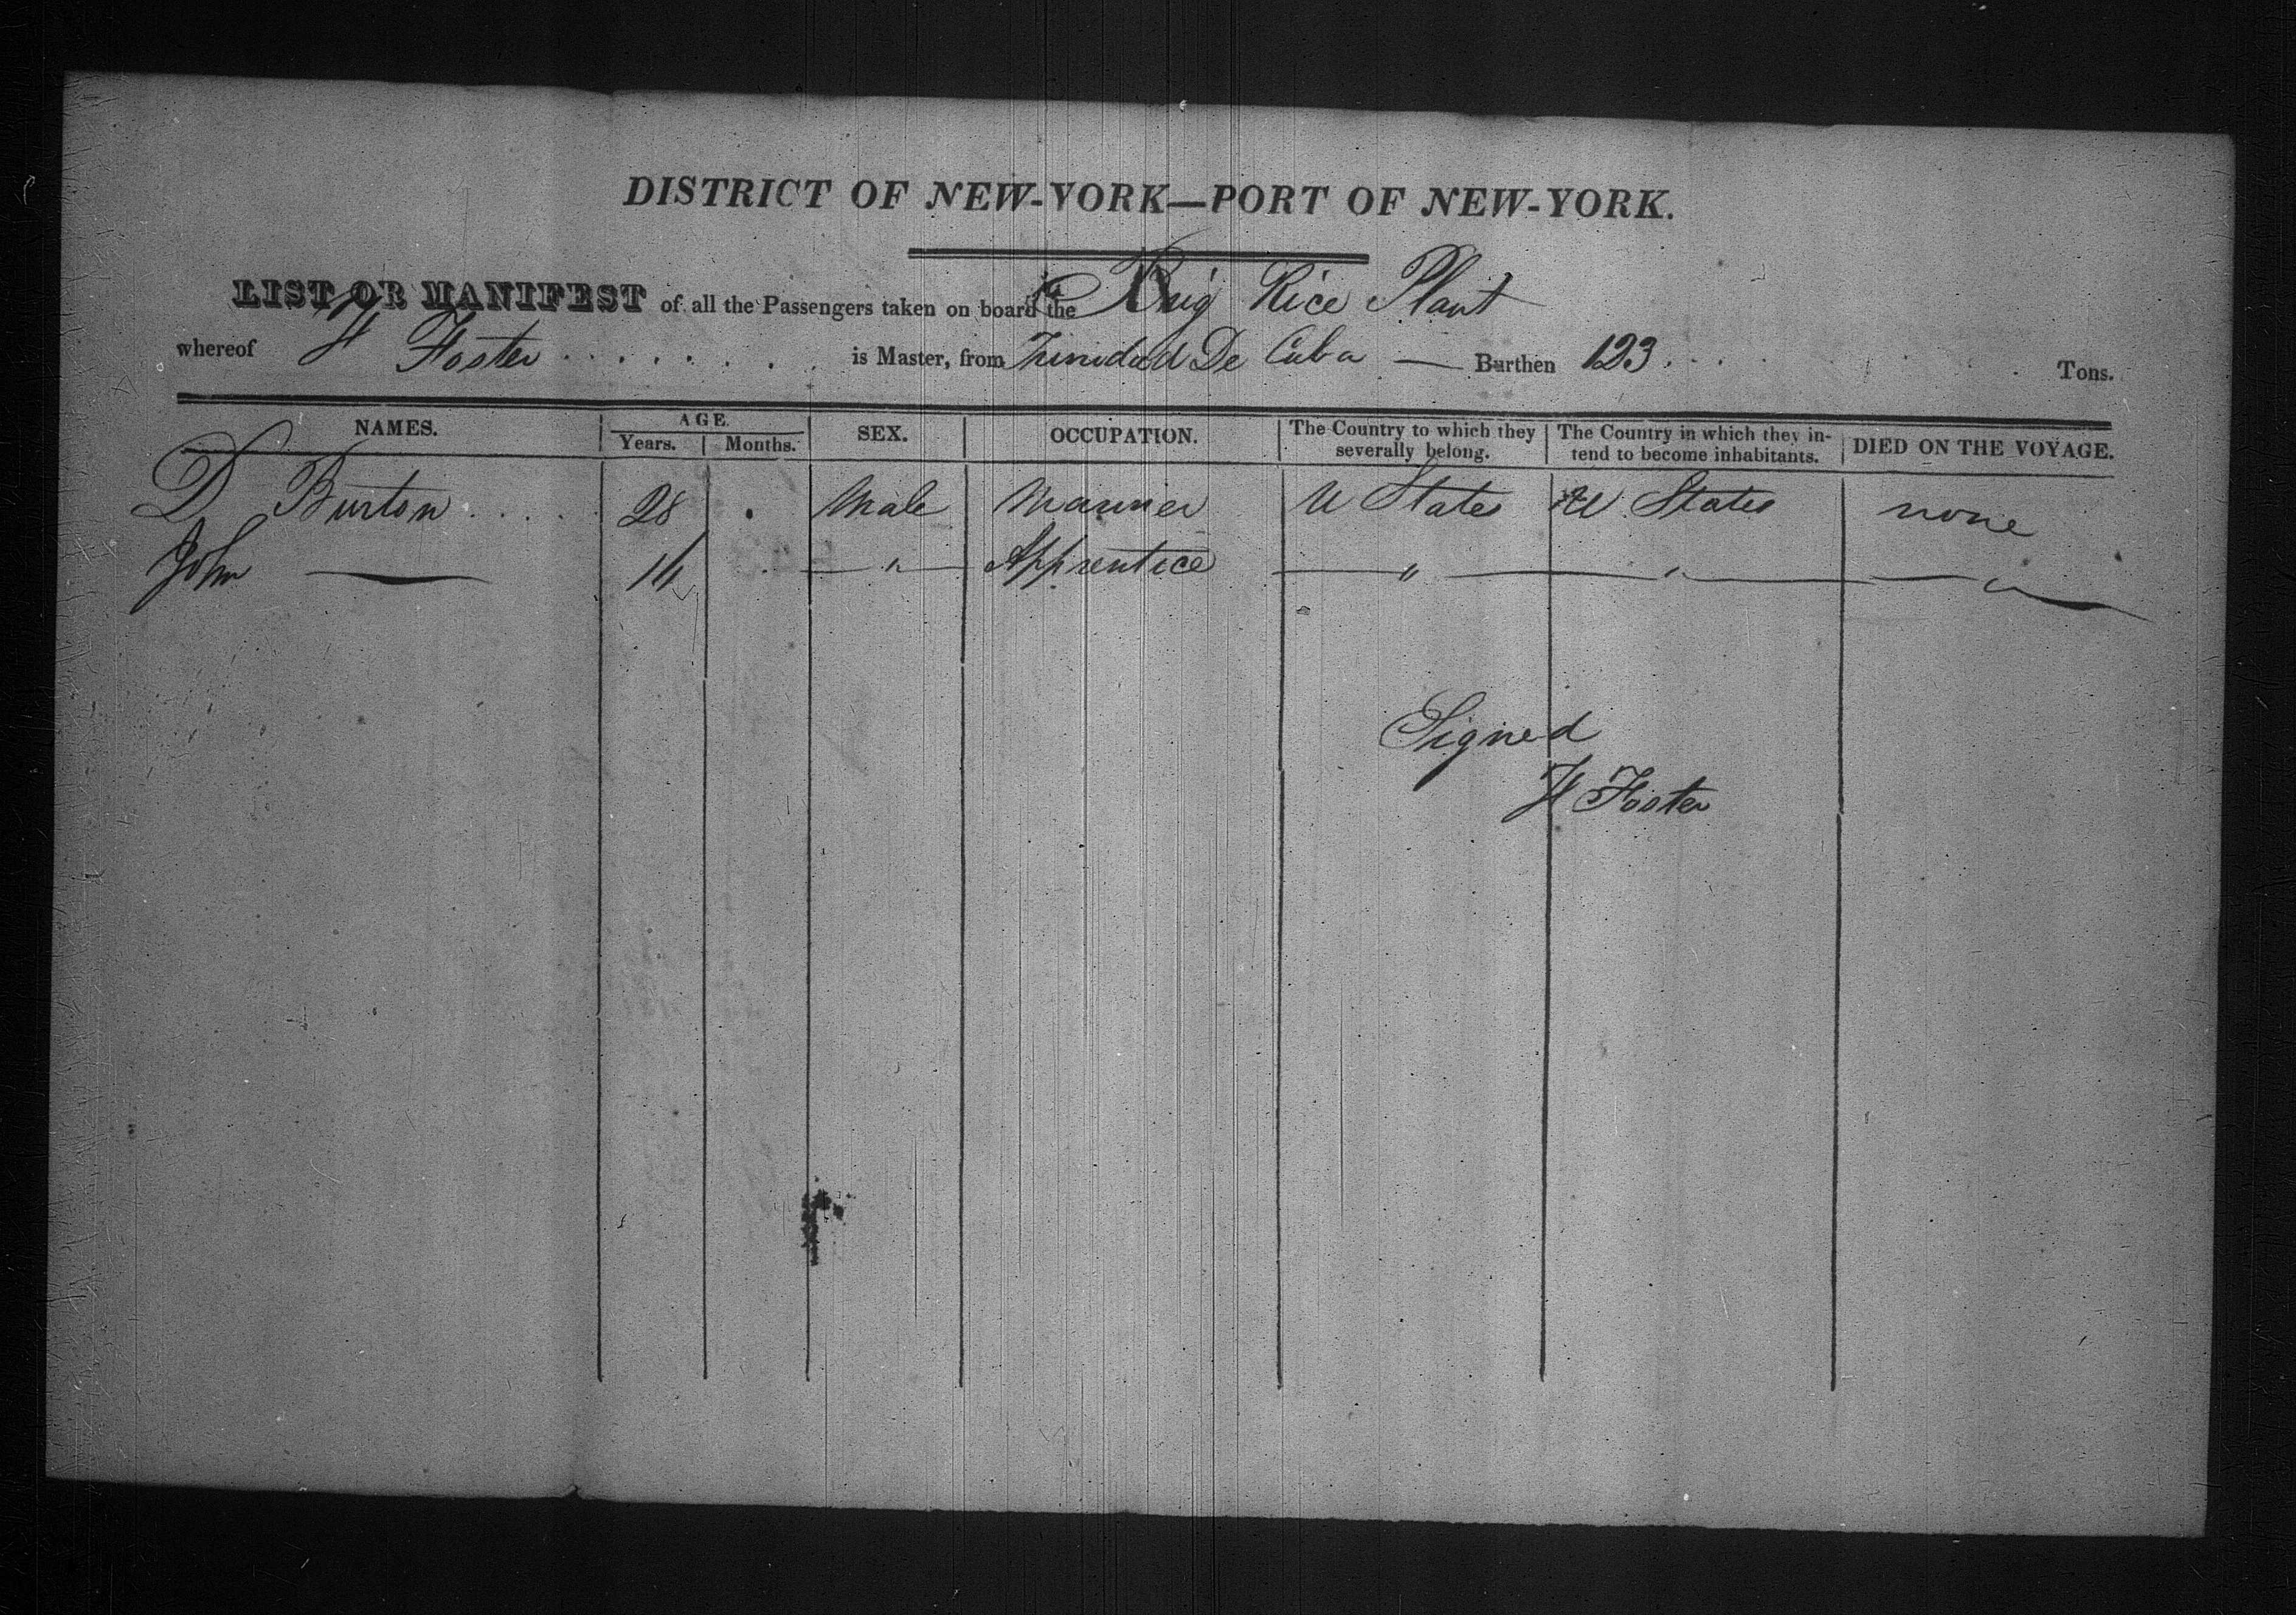 DISTRICT OF NEW-YORK—PORT OF NEW-YORK.
LIST OR MANIFEST of all the Passengers taken on board the Brig Rice Plant
whereof H Foster . . . . . . . is Master, from Trinidad De Cuba — Burthen 123 . . . Tons.
NAMES. AGE. Years. Months. SEX. OCCUPATION. The Country to which they severally belong. The Country in which they intend to become inhabitants. DIED ON THE VOYAGE.
D Burton . . . . . 28 . Male Mariner U States U States none
John — 16 . — " — Apprentice — " — " — "
Signed
H Foster